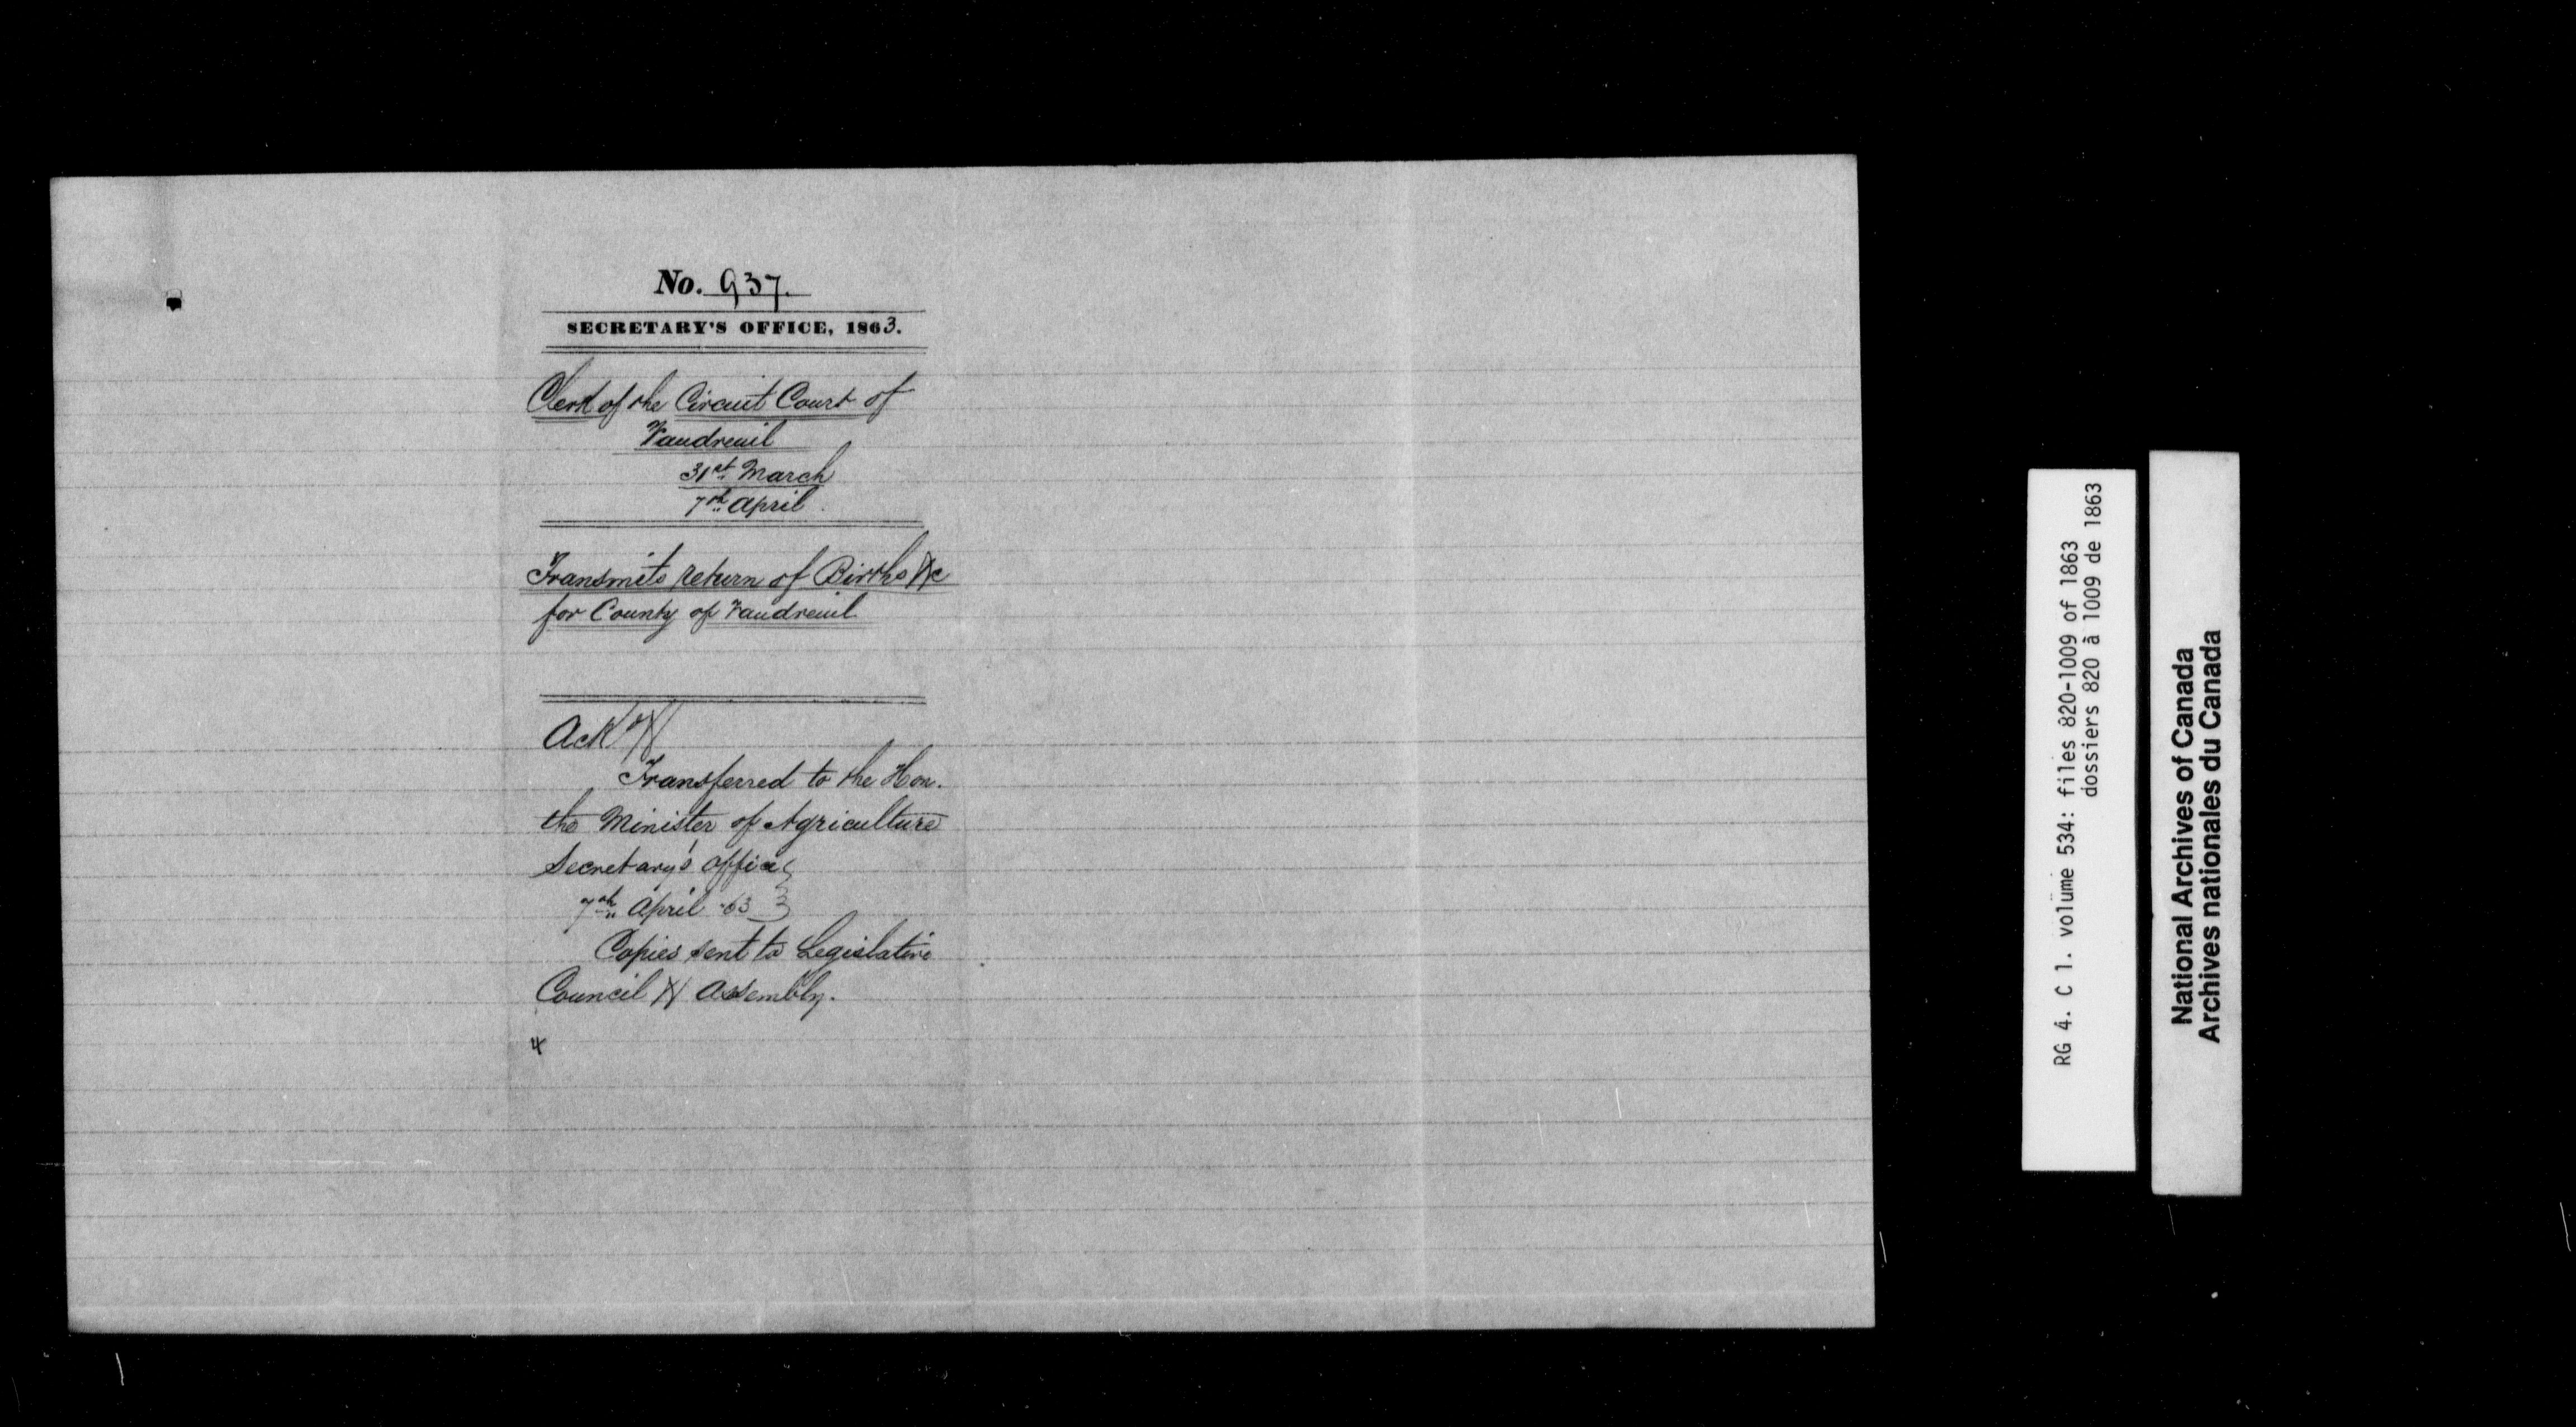 No. 937.
SECRETARY'S OFFICE, 1863.
Clerk of the Circuit Court of
Vaudreuil
31st March
7th April
Transmits return of Births &c
for County of Vaudreuil
Ackd &
Transferred to the Hon.
the Minister of Agriculture
Secretary's Office
7th April -63
Copies sent to Legislative
Council & Assembly.
4
RG 4. C 1. volume 534: files 820-1009 of 1863
dossiers 820 à 1009 de 1863
National Archives of Canada
Archives nationales du Canada